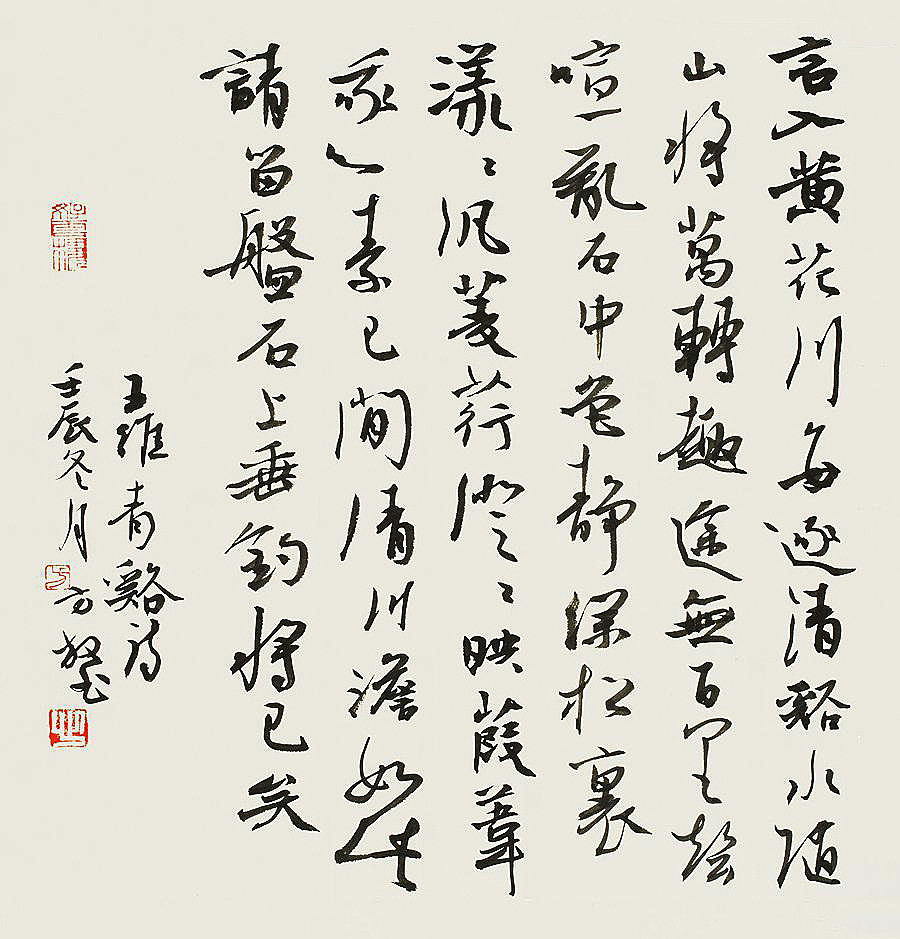 言入黃花川每逐清谿水隨
山將萬轉趣途無百里聲
喧亂石中色靜深松裏
漾〻汎菱荇澄〻映葭葦
我心素已閒清川澹如此
請留盤石上垂釣將已矣
王維青谿詩
壬辰冬月方